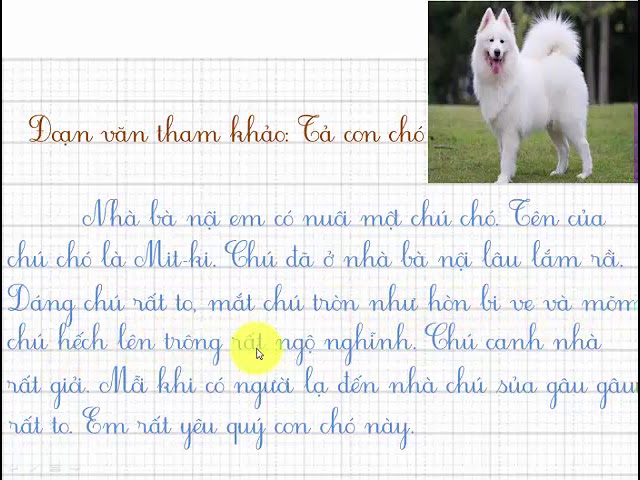 Đoạn văn tham khảo: Tả con chó
Nhà bà nội em có nuôi một chú chó. Tên của
chú chó là Mit-ki. Chú đã ở nhà bà nội lâu lắm rồi.
Dáng chú rất to, mắt chú tròn như hòn bi ve và mõm
chú hếch lên trông rất ngộ nghĩnh. Chú canh nhà
rất giỏi. Mỗi khi có người lạ đến nhà chú sủa gâu gâu
rất to. Em rất yêu quý con chó này.